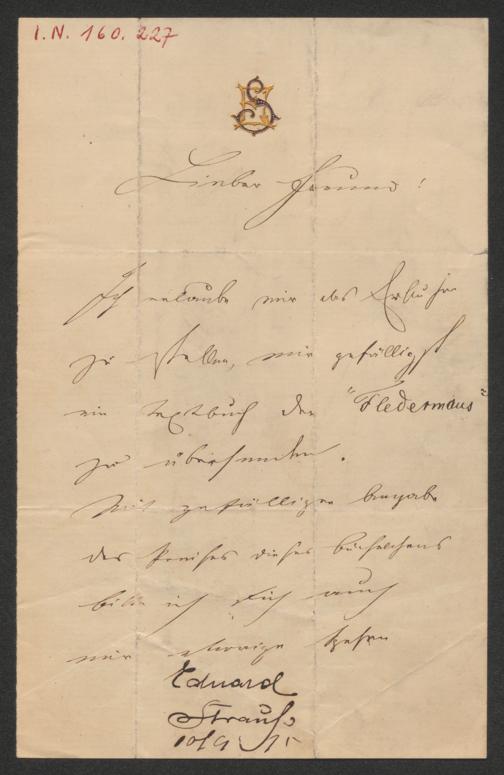 I.N. 160.227
ES
Lieber Freund!
Ich erlaube mir das Ersuchen
zu stellen, mir gefälligst
ein Textbuch der "Fledermaus"
zu übersenden.
Mit gefälliger Angabe
des Preises dieses Büchelchens
bitte ich Dich auch
mir etwaige Spesen
Eduard
Strauss
10/9